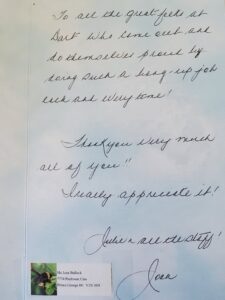 To all the great folks at
Dart who come out and
do themselves proud by
doing such a bang-up job
each and every time!
Thank you very much
all of you!!
I really appreciate it!
all the staff!
Joan
Ms. Joan
Prince George BC